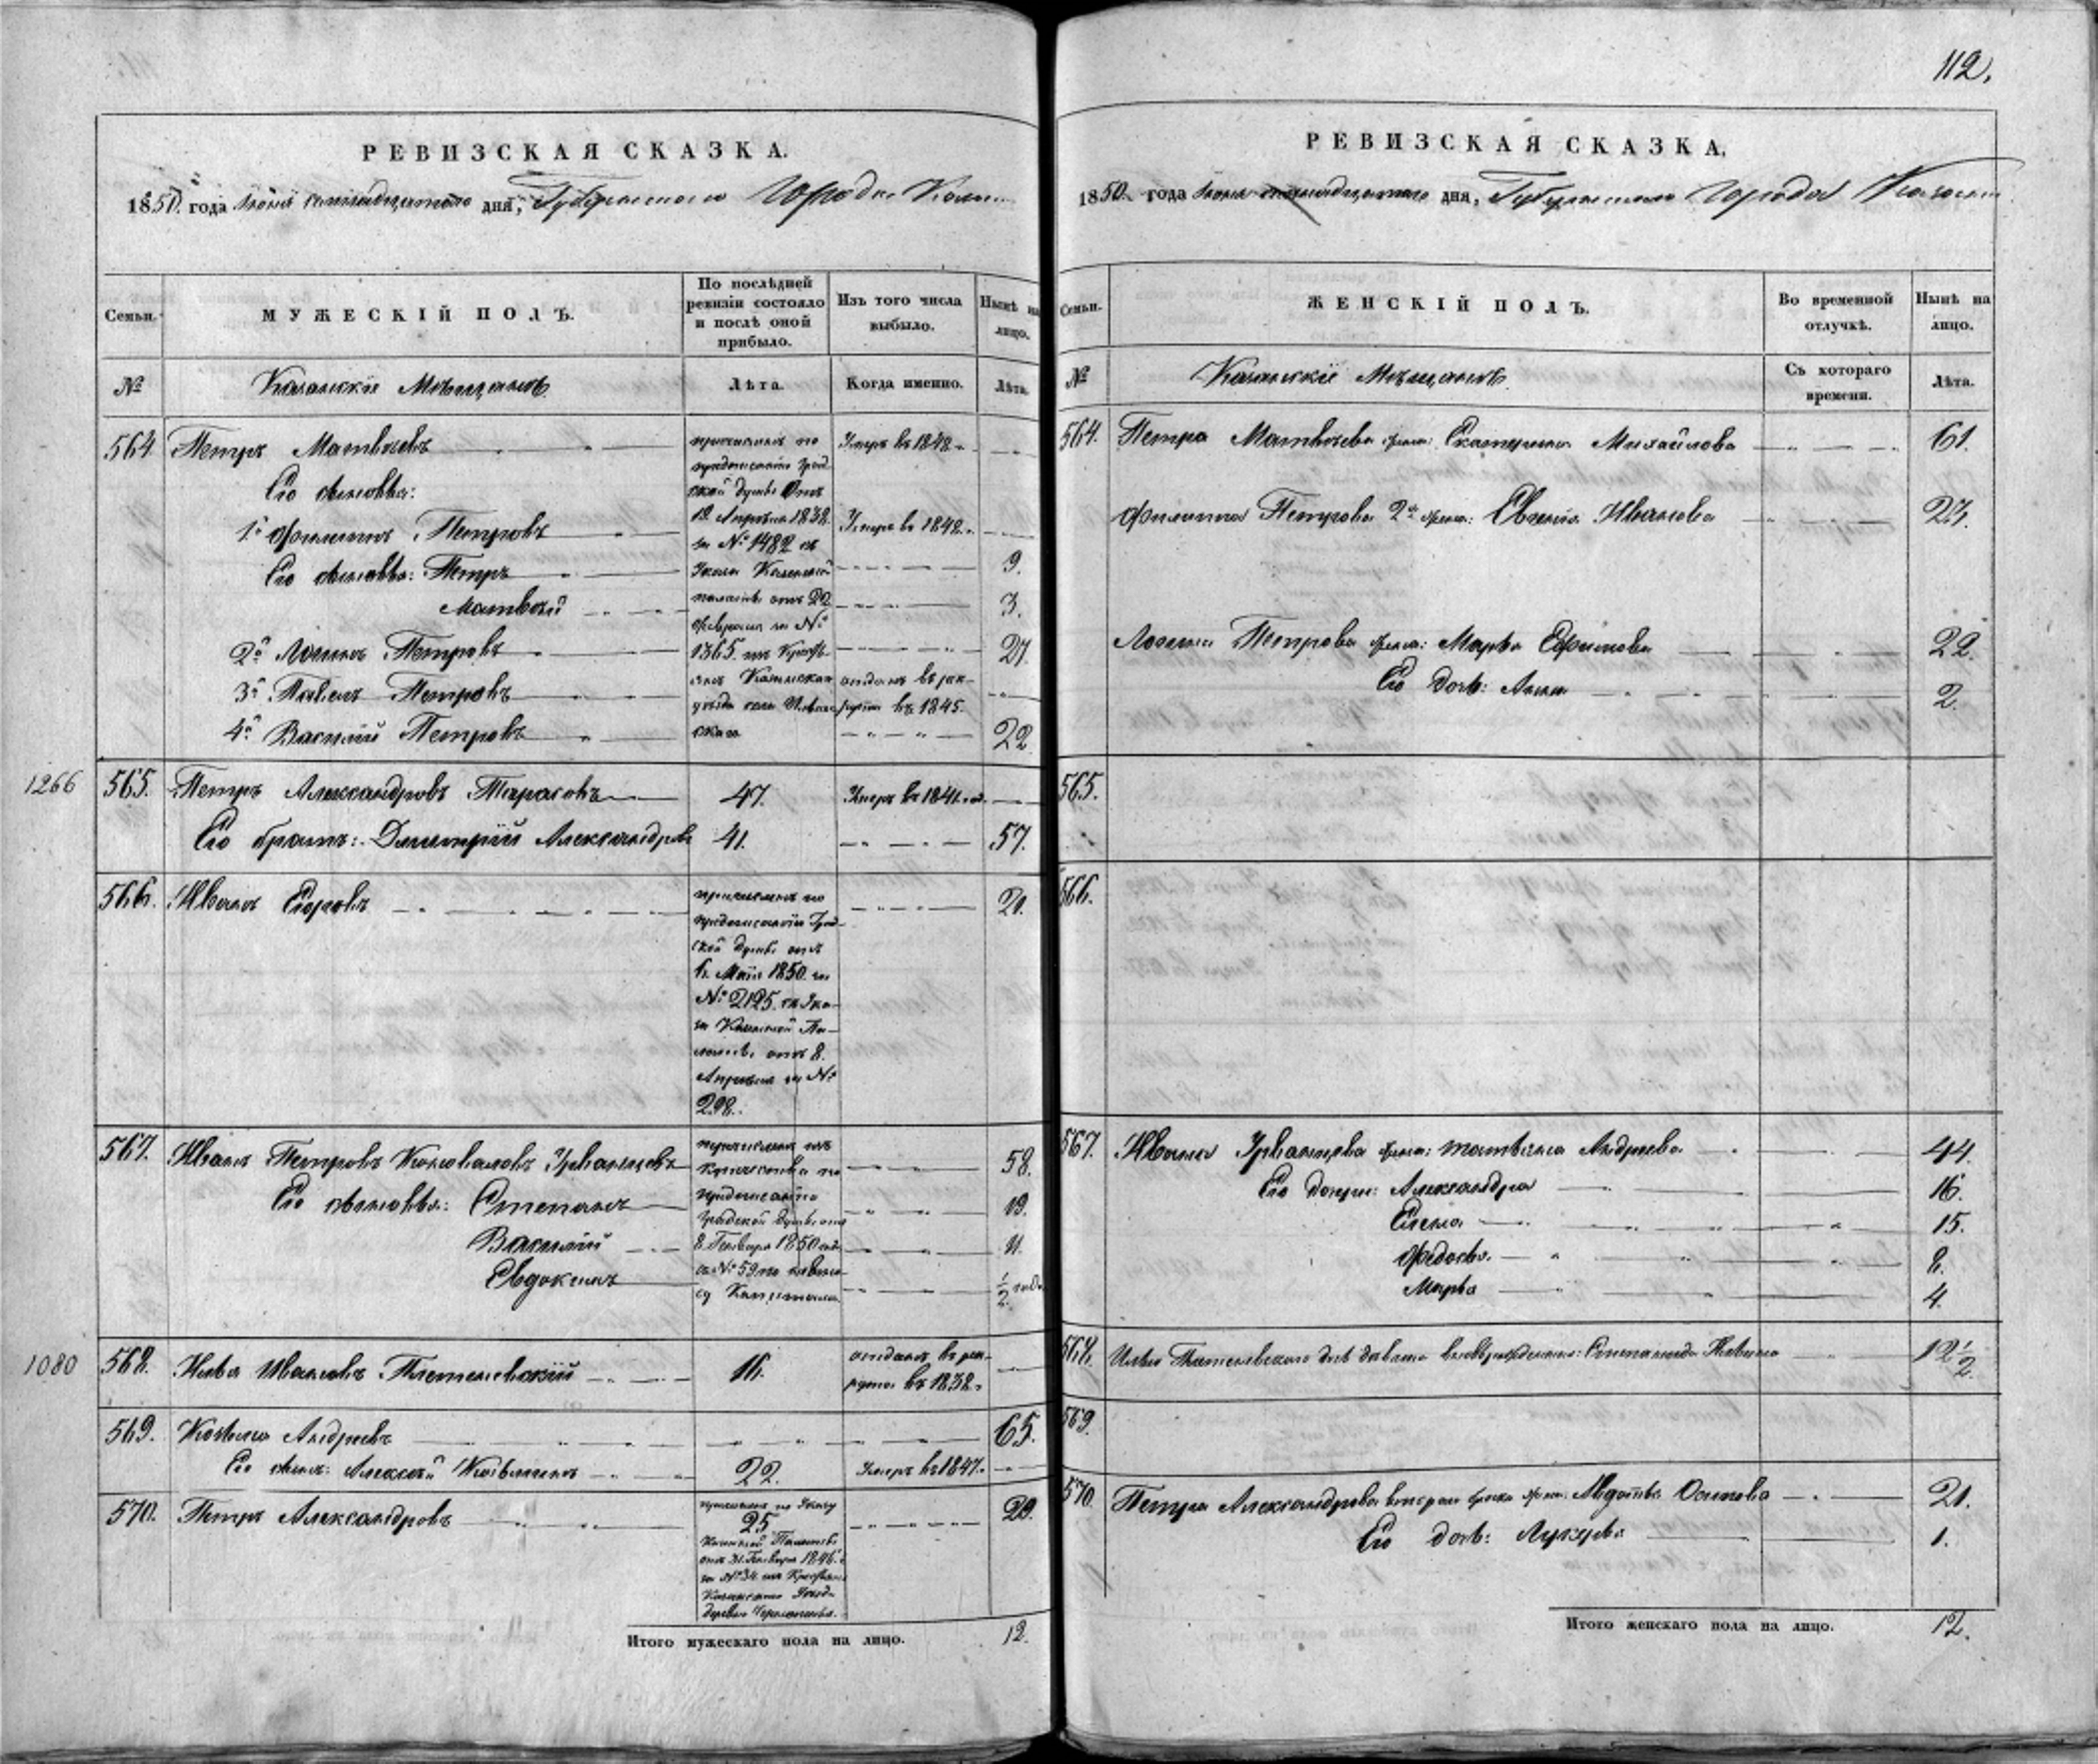 РЕВИЗСКАЯ СКАЗКА.
1850. года Іюня дня, Губернскаго Города Казани
Семьи.
МУЖЕСКІЙ ПОЛЪ.
По послѣдней ревизіи состояло и послѣ оной прибыло.
Изъ того числа выбыло.
Нынѣ на лицо.
№
Казанскіе Мѣщане
Лѣта.
Когда именно.
Лѣта.
564. Петръ Матвѣевъ
причисленъ по
Умеръ въ 1848.
Его сыновья:
предписанію Град
ской Думы Отъ
1й Филиппъ Петровъ
19 Апрѣля 1838.
Умеръ въ 1848.
за № 1482 съ
Его сыновья: Петръ
Указа Казенной
9.
Матвей
палаты отъ 22
3.
Февраля за №
2й Логинъ Петровъ
1365. изъ Крестьянъ
27.
3й Павелъ Петровъ
Казанскаго
отданъ въ рек-
уѣзда села
руты въ 1845.
4й Василій Петровъ
22
1266
565. Петръ Александровъ Тарасовъ
47.
Умеръ въ 1841. год.
Его братъ: Дмитрій Александровъ
41.
57.
566. Иванъ Егоровъ
причисленъ по
21.
предписанію Град-
ской Думы отъ
6. Маія 1850. за
№ 2125. съ Ука-
за Казенной Па-
латы отъ 8.
Апрѣля за №
298.
567. Иванъ Петровъ Коноваловъ Урванцевъ
перечисленъ изъ
купечества по
58.
Его сыновья: Степанъ
предписанію
19.
Градской Думы отъ
Василій
8. Генваря 1850 года
11.
Евдокимъ
за № 59 по
½ года
Капитала
1080
568. Илья Ивановъ
16.
отданъ въ рек-
руты въ 1838.
569. Козьма Андреевъ
65.
Его сынъ: Алексѣй Козьминъ
22.
Умеръ въ 1847.
570. Петръ Александровъ
причисленъ по Указу
25
29.
Казенной Палаты
отъ 31. Генваря 1846.
за № 34 изъ Крестьянъ
Казанскаго Уезда
деревни
Итого мужескаго пола на лицо.
12.
112.
РЕВИЗСКАЯ СКАЗКА.
1850. года Іюня дня, Губернскаго Города Казани
Семьи.
ЖЕНСКІЙ ПОЛЪ.
Во временной отлучкѣ.
Нынѣ на лицо.
№
Казанскіе Мѣщане
Съ котораго времени.
Лѣта.
564. Петра Матвѣева жена: Екатерина Михайлова
61.
Филиппа Петрова 2я жена: Евгенія Иванова
27.
Логина Петрова жена: Марья Ефимова
22.
Его дочь: Анна
2.
565.
566.
567. Ивана Урванцева жена: Татьяна Андреева
44.
Его дочери: Александра
16.
Елена
15.
Федосья
8.
Марья
4.
568.
12½
569.
570. Петра Александрова втораго брака жена: Авдотья Осипова
21.
Его дочь: Лукерья
1.
Итого женскаго пола на лицо.
12.